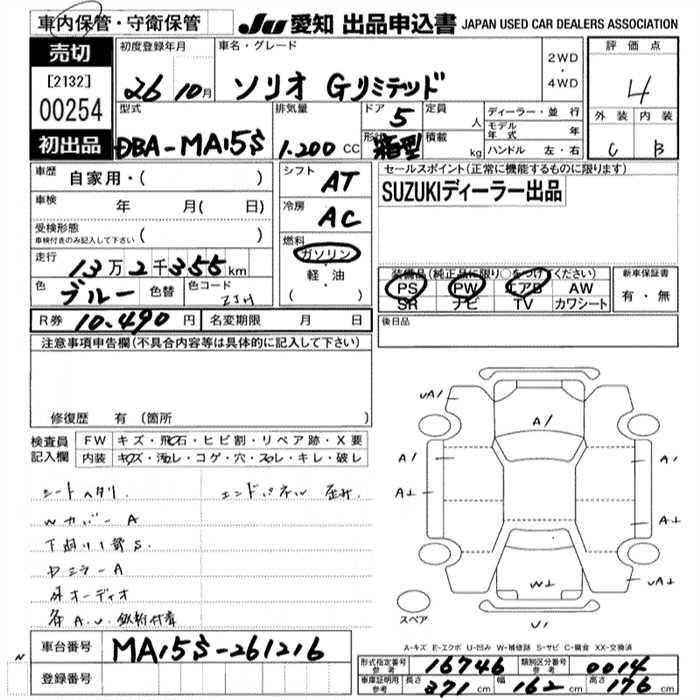 車内保管・守衛保管
JU 愛知 出品申込書 JAPAN USED CAR DEALERS ASSOCIATION
売切
[2132]
00254
初出品
初度登録年月
26 10月
車名・グレード
ソリオ Gリミテッド
2WD
・
4WD
評価点
4
外装 内装
C B
型式
DBA-MA15S
排気量
1.200 CC
ドア 5
形状 箱型
定員 人
積載 kg
ディーラー・並行
モデル年式 年
ハンドル 左・右
車歴 自家用・( )
車検 年 月( 日)
受検形態
車検付きのみ記入して下さい ( )
走行 13万2千355km
色 ブルー 色替 色コード ZJH
シフト AT
冷房 AC
燃料
ガソリン
軽・油
( )
セールスポイント(正常に機能するものに限ります)
SUZUKIディーラー出品
装備品(純正品に限り○をつけてください)
PS PW エアB AW
SR ナビ TV カワシート
新車保証書
有・無
後日品
R券 10.490円 名変期限 月 日
注意事項申告欄(不具合内容等は具体的に記入して下さい)
修復歴 有 (箇所 )
検査員記入欄
FW キズ・飛石・ヒビ割・リペア跡・X要
内装 キズ・汚レ・コゲ・穴・スレ・キレ・破レ
シートヘタリ エンドパネル
Wカバー A
下廻り1部S.
ドミラーA
オーディオ
UA1
A1
A1
A1
A1
A1
W1
UA1
U1
スペア
A-キズ E-エクボ U-凹み W-補修跡 S-サビ C-腐食 XX-交換済
車台番号 MA15S-261216
登録番号
N
形式指定番号 参考 16746 類別区分番号 参考 0014
車庫証明用 参考 長さ 371cm 幅 162cm 高さ 176cm